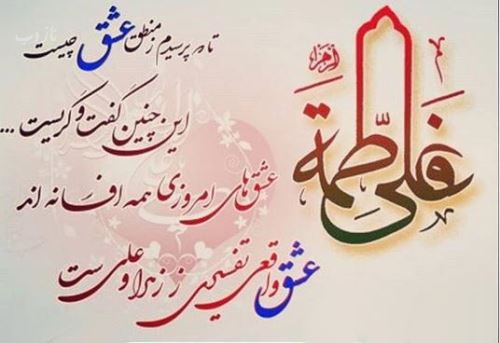 تا که پرسیدم ز منطق عشق چیست
این چنین گفت و گریست ...
عشق های امروزی همه افسانه اند
عشق واقعی تفسیری ز زهرا و علی ست
علی فاطمة
زهرا